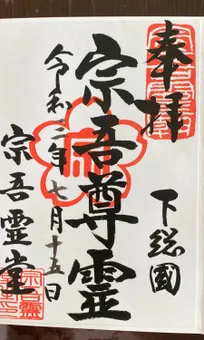 奉拝
下総國
宗吾尊霊
令和二年七月十五日
宗吾霊堂